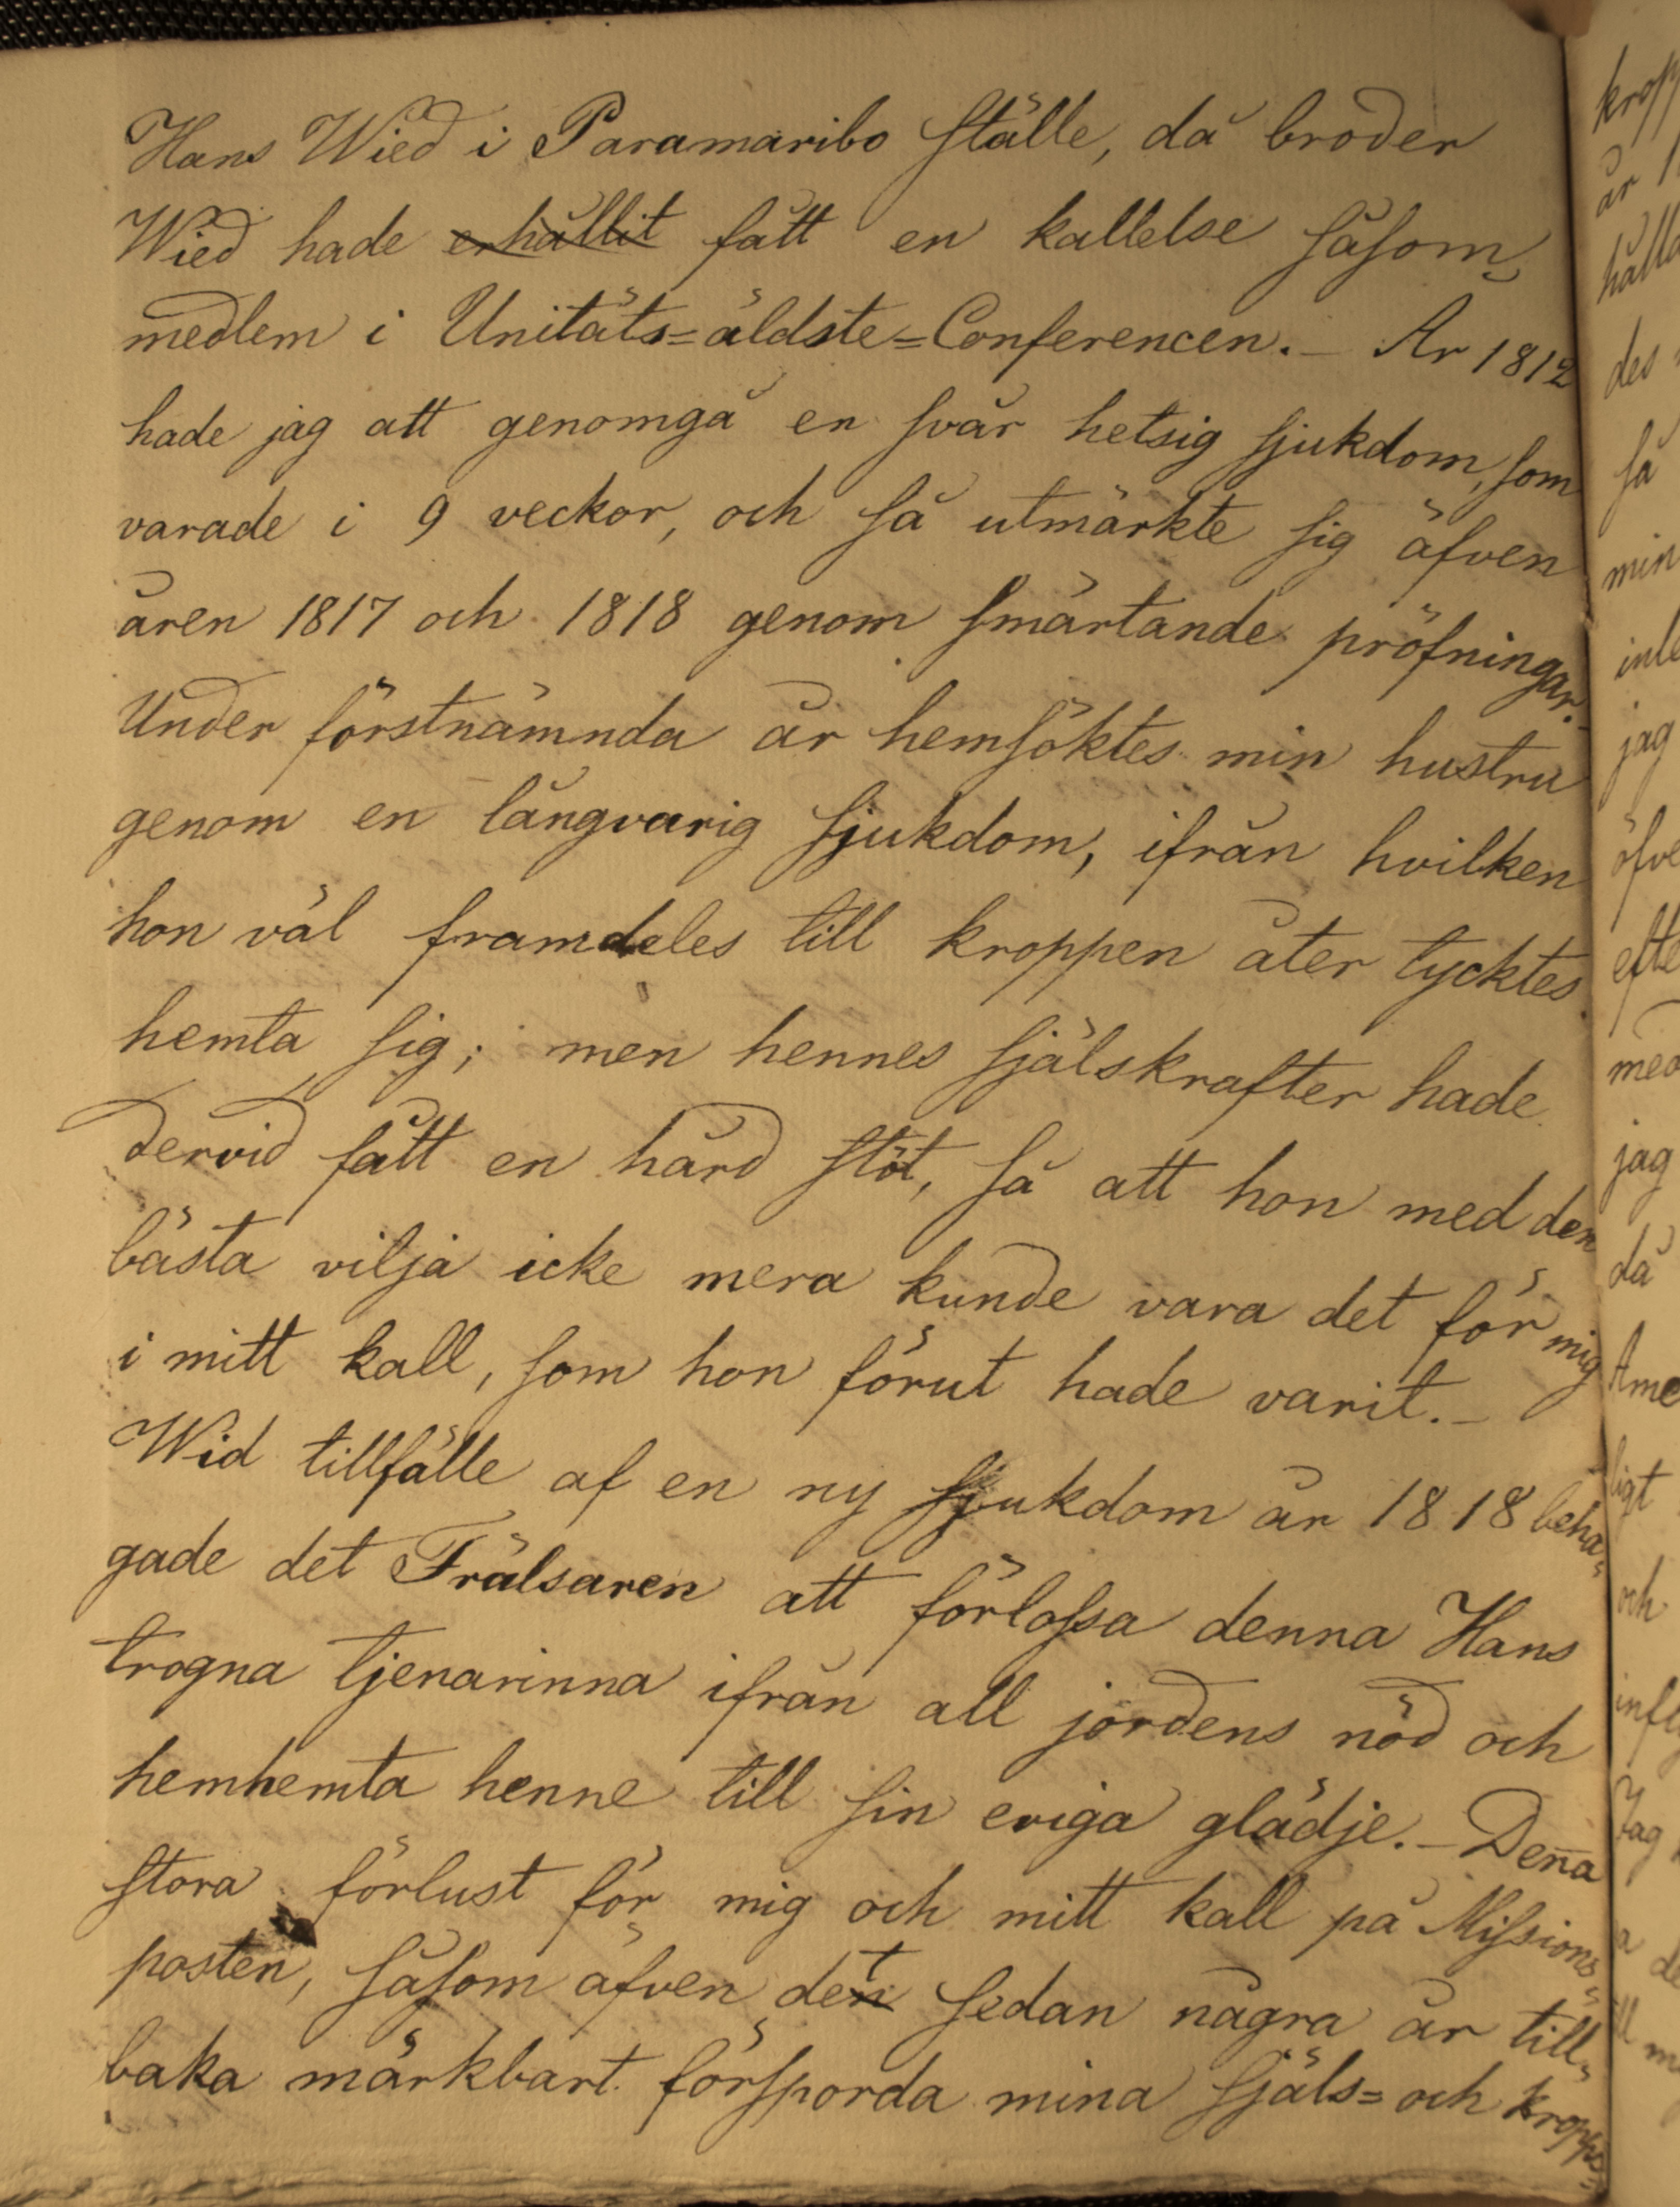 Hans Wied i Paramaribo ställe, då broder
Wied hade erhållit fått en kallelse såsom
medlem i Unitäts=äldste=Conferencen. – År 1812
hade jag att genomgå en svår hetsig sjukdom, som
varade i 9 veckor, och så utmärkte sig äfven
åren 1817 och 1818 genom smärtande pröfningar. –
Under förstnämnda år hemsöktes min hustru
genom en långvarig sjukdom, ifrån hvilken
hon väl framdeles till kroppen åter tycktes
hemta sig; men hennes själskrafter hade
dervid fått en hård stöt, så att hon med den
bästa vilja icke mera kunde vara det för mig
i mitt kall, som hon förut hade varit. –
Wid tillfälle af en ny sjukdom år 1818 beha=
gade det Frälsaren att förlossa denna Hans
trogna tjenarinna ifrån all jordens nöd och
hemhemta henne till sin eviga glädje. – Den̄a
stora förlust för mig och mitt kall på Missions=
posten, såsom äfven det sedan några år till=
baka märkbart försporda mina själs= och kropps=
kropp
år
hålla
des
så
min
jag
med
jag
då
ligt
och
Jag